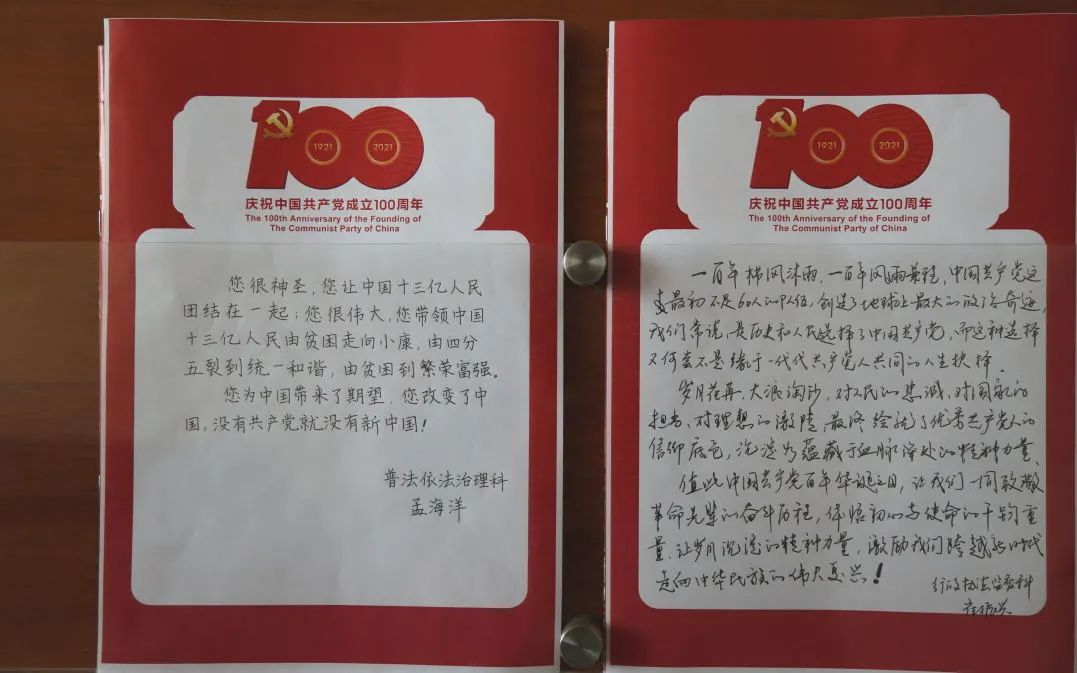 100
1921
2021
庆祝中国共产党成立100周年
The 100th Anniversary of the Founding of
The Communist Party of China
您很神圣，您让中国十三亿人民
团结在一起；您很伟大，您带领中国
十三亿人民由贫困走向小康，由四分
五裂到统一和谐，由贫困到繁荣富强。
您为中国带来了期望，您改变了中
国，没有共产党就没有新中国！
普法依法治理科
孟海洋
100
1921
2021
庆祝中国共产党成立100周年
The 100th Anniversary of the Founding of
The Communist Party of China
一百年栉风沐雨，一百年风雨兼程，中国共产党这
支最初不足60人的队伍，创造了地球上最大的政治奇迹，
我们常说，是历史和人民选择了中国共产党，而这种选择
又何尝不是缘于一代代共产党人共同的人生抉择。
岁月荏苒，大浪淘沙，对人民的忠诚，对国家的
担当，对理想的激情，最终绘就了优秀共产党人的
信仰底色，沉淀为蕴藏于血脉深处的精神力量。
值此中国共产党百年华诞之日，让我们一同致敬
革命先辈的奋斗历程，体悟初心与使命的千钧重
量，让岁月沉淀的精神力量，激励我们跨越新时代
走向中华民族的伟大复兴！
行政执法监督科